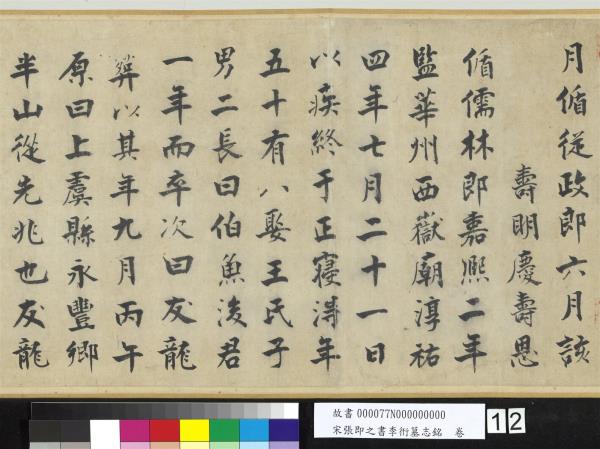 月循從政郎六月該
壽明慶壽恩
循儒林郎嘉熙二年
監華州西嶽廟淳祐
四年七月二十一日
以疾終于正寢得年
五十有八娶王氏子
男二長曰伯魚後君
一年而卒次曰友龍
葬以其年九月丙午
原曰上虞縣永豐鄉
半山從先兆也友龍
故書 000077N000000000
宋張即之書李衎墓志銘 卷
12